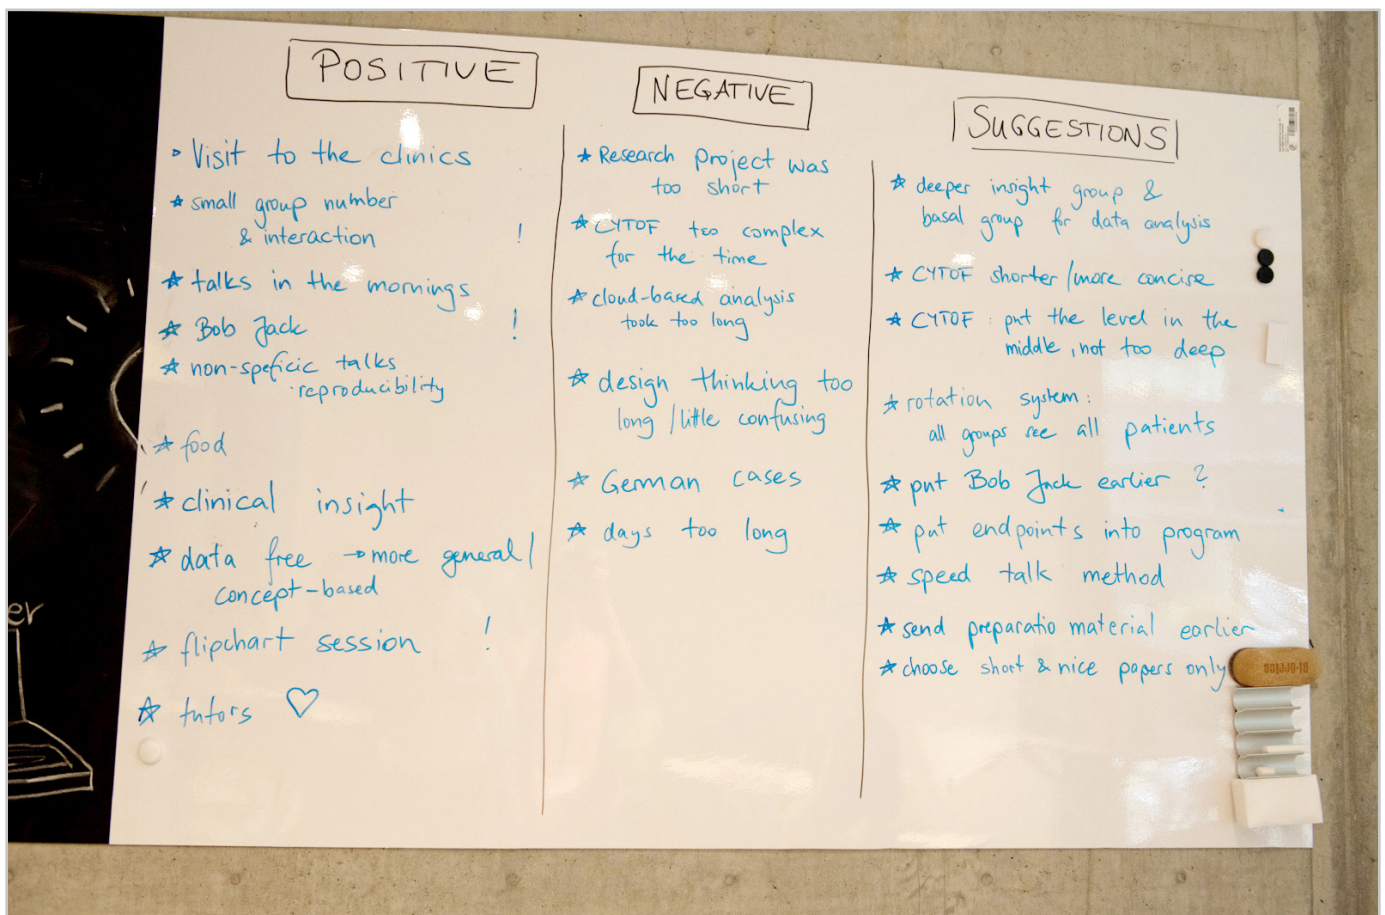 POSITIVE
▹ Visit to the clinics
* small group number
& interaction !
* talks in the mornings
* Bob Jack !
* non-speficic talks
· reproducibility
* food
* clinical insight
* data free → more general/
concept-based
* flipchart session !
* tutors ♡
NEGATIVE
* Research project was
too short
* CYTOF too complex
for the time
* cloud-based analysis
took too long
* design thinking too
long / little confusing
* German cases
* days too long
SUGGESTIONS
* deeper insight group &
basal group for data analysis
* CYTOF shorter/more concise
* CYTOF : put the level in the
middle, not too deep
* rotation system:
all groups see all patients
* put Bob Jack earlier ?
* put endpoints into program
* speed talk method
* send preparatio material earlier
* choose short & nice papers only
er